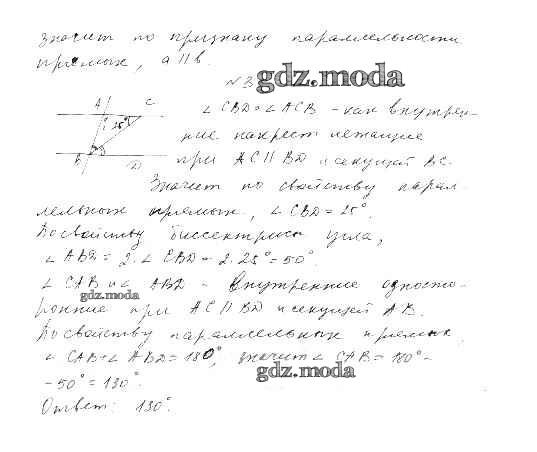 значит по признаку параллельности
прямых, a || b.
№ 3 gdz.moda
A C
25°
B D
∠ CBD = ∠ ACB - как внутрен-
ние накрест лежащие
при AC || BD и секущей BC.
Значит по свойству парал-
лельных прямых, ∠ CBD = 25°.
По свойству биссектрисы угла,
∠ ABD = 2 · ∠ CBD = 2 · 25° = 50°.
∠ CAB и ∠ ABD - внутренние односто-
gdz.moda
ронние при AC || BD и секущей AB.
По свойству параллельных прямых
∠ CAB + ∠ ABD = 180°, значит ∠ CAB = 180° -
gdz.moda
- 50° = 130°.
Ответ: 130°.